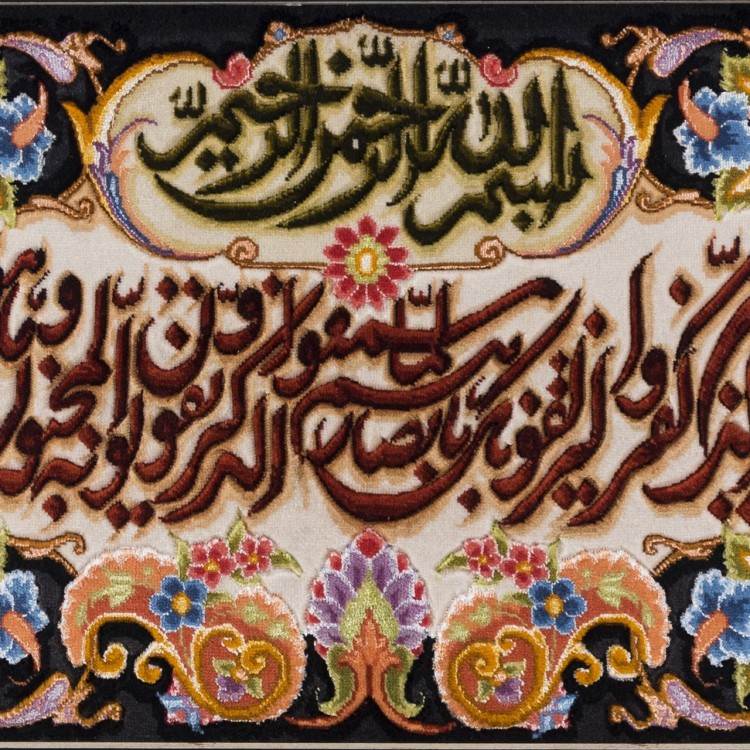 بسم الله الرحمن الرحیم
الذین کفروا لیزلقونک بابصارهم لما سمعوا الذکر و یقولون انه لمجنون و ما